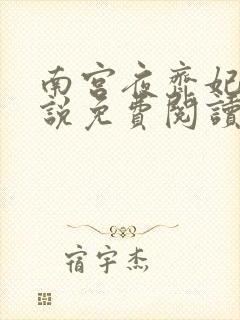 南宫夜齊妃
說免費閱讀
宿宇杰